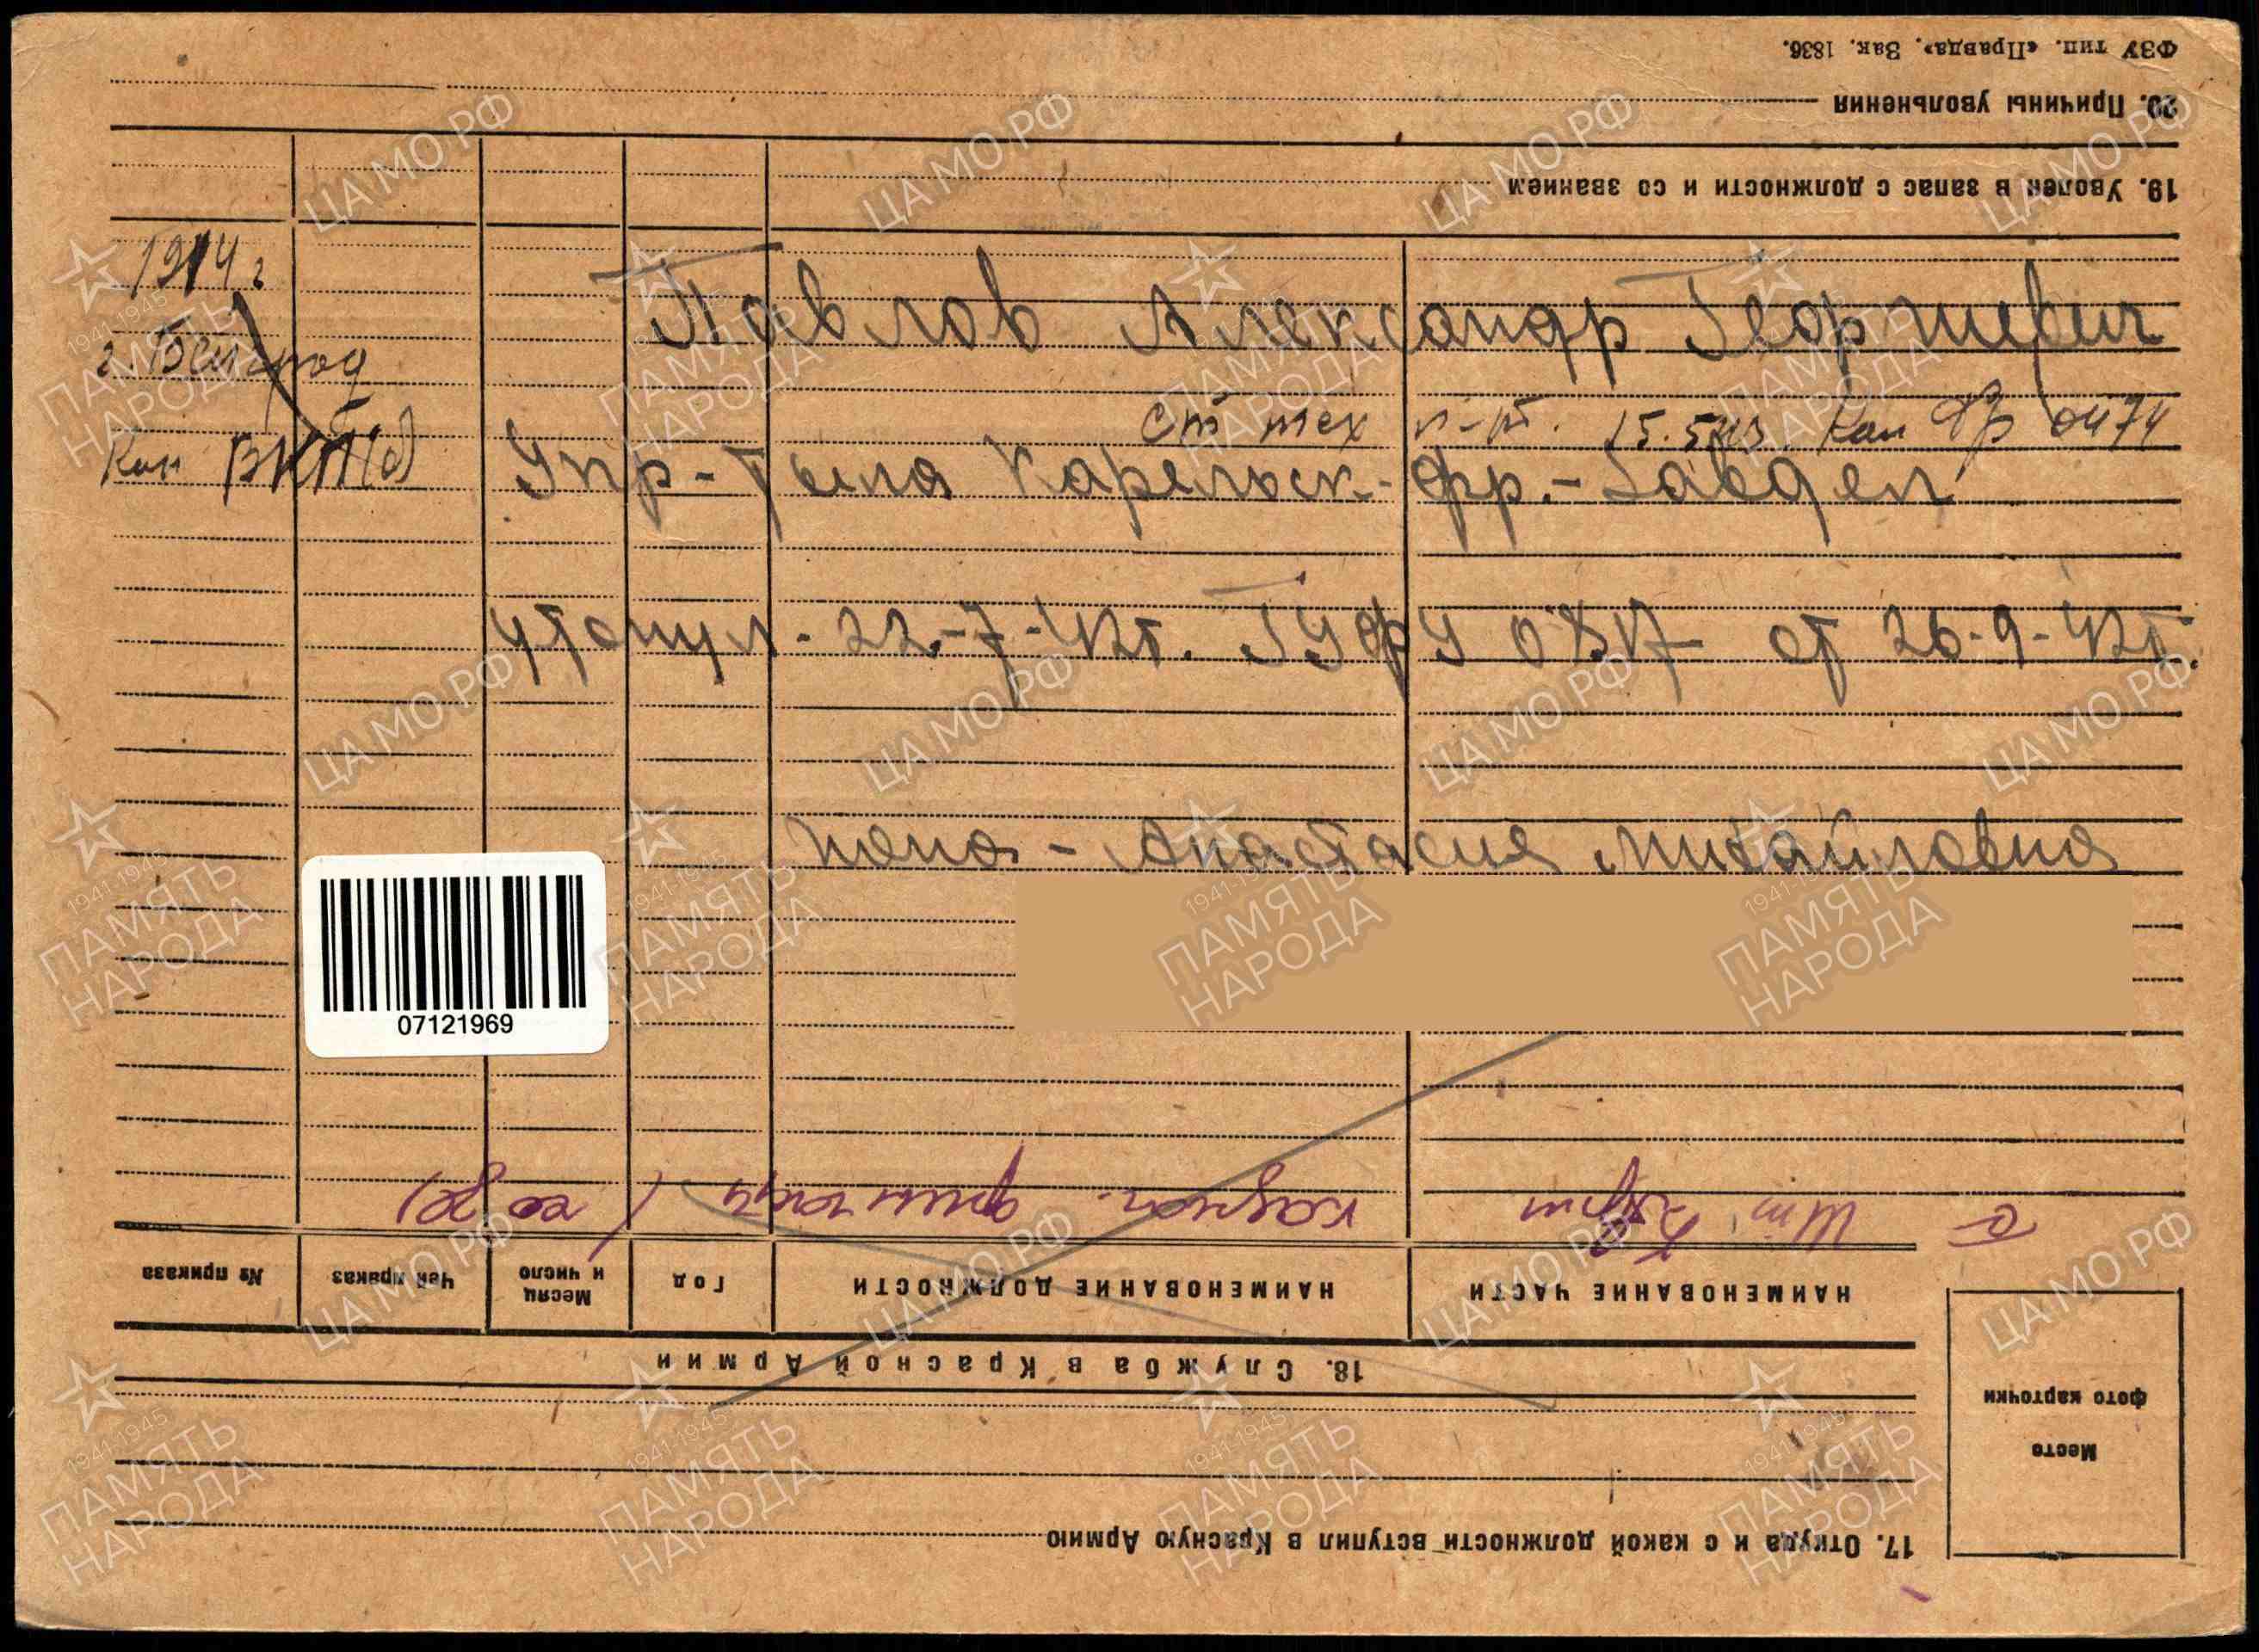 1914 г
Павлов Александр Георгиевич
г. Белград
ст тех л-т. 15.5.43. Кар фр 0474
Кан ВКП(б)
Упр-Тыла Карельск-фр.-Завдел
утонул-22.-7-42г. ГУФУ 0817 от 26-9-42г.
жена-Анастасия Михайловна
07121969
17. Откуда и с какой должности вступил в Красную Армию
Место
фото карточки
18. Служба в Красной Армии
НАИМЕНОВАНИЕ ЧАСТИ
НАИМЕНОВАНИЕ ДОЛЖНОСТИ
Год
Месяц
и число
Чей приказ
№ приказа
19. Уволен в запас с должности и со званием
20. Причины увольнения
ФЗУ тип. «Правда». Зак. 1836.
ЦАМО.РФ
1941-1945
ПАМЯТЬ
НАРОДА